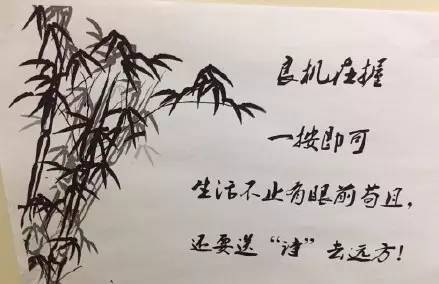 良机在握
一按即可
生活不止有眼前苟且，
还要送“诗”去远方！